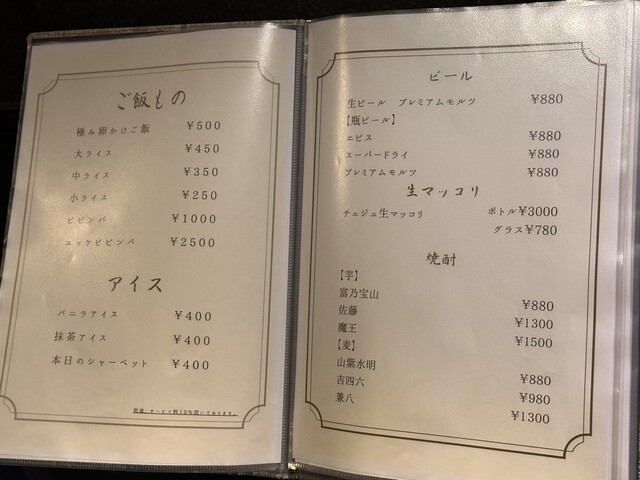 ご飯もの
極み卵かけご飯 ¥500
大ライス ¥450
中ライス ¥350
小ライス ¥250
ビビンバ ¥1000
ユッケビビンバ ¥2500
アイス
バニラアイス ¥400
抹茶アイス ¥400
本日のシャーベット ¥400
別途、サービス料10%頂いております。
ビール
生ビール プレミアムモルツ ¥880
【瓶ビール】
エビス ¥880
スーパードライ ¥880
プレミアムモルツ ¥880
生マッコリ
チェジュ生マッコリ ボトル¥3000
グラス¥780
焼酎
【芋】
富乃宝山 ¥880
佐藤 ¥1300
魔王 ¥1500
【麦】
山紫水明 ¥880
吉四六 ¥980
兼八 ¥1300